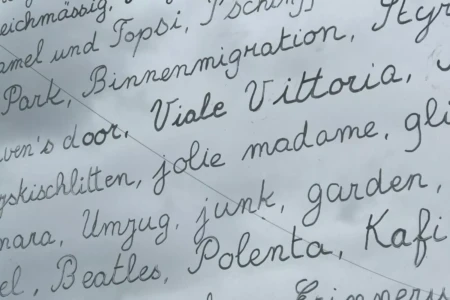 eichmässig,
amel und Topsi,
Park, Binnenmigration, Styr
ven's door, Viale Vittoria,
gskischlitten, jolie madame, gli
nara, Umzug, junk, garden,
el, Beatles, Polenta, Kafi
Erinnerun